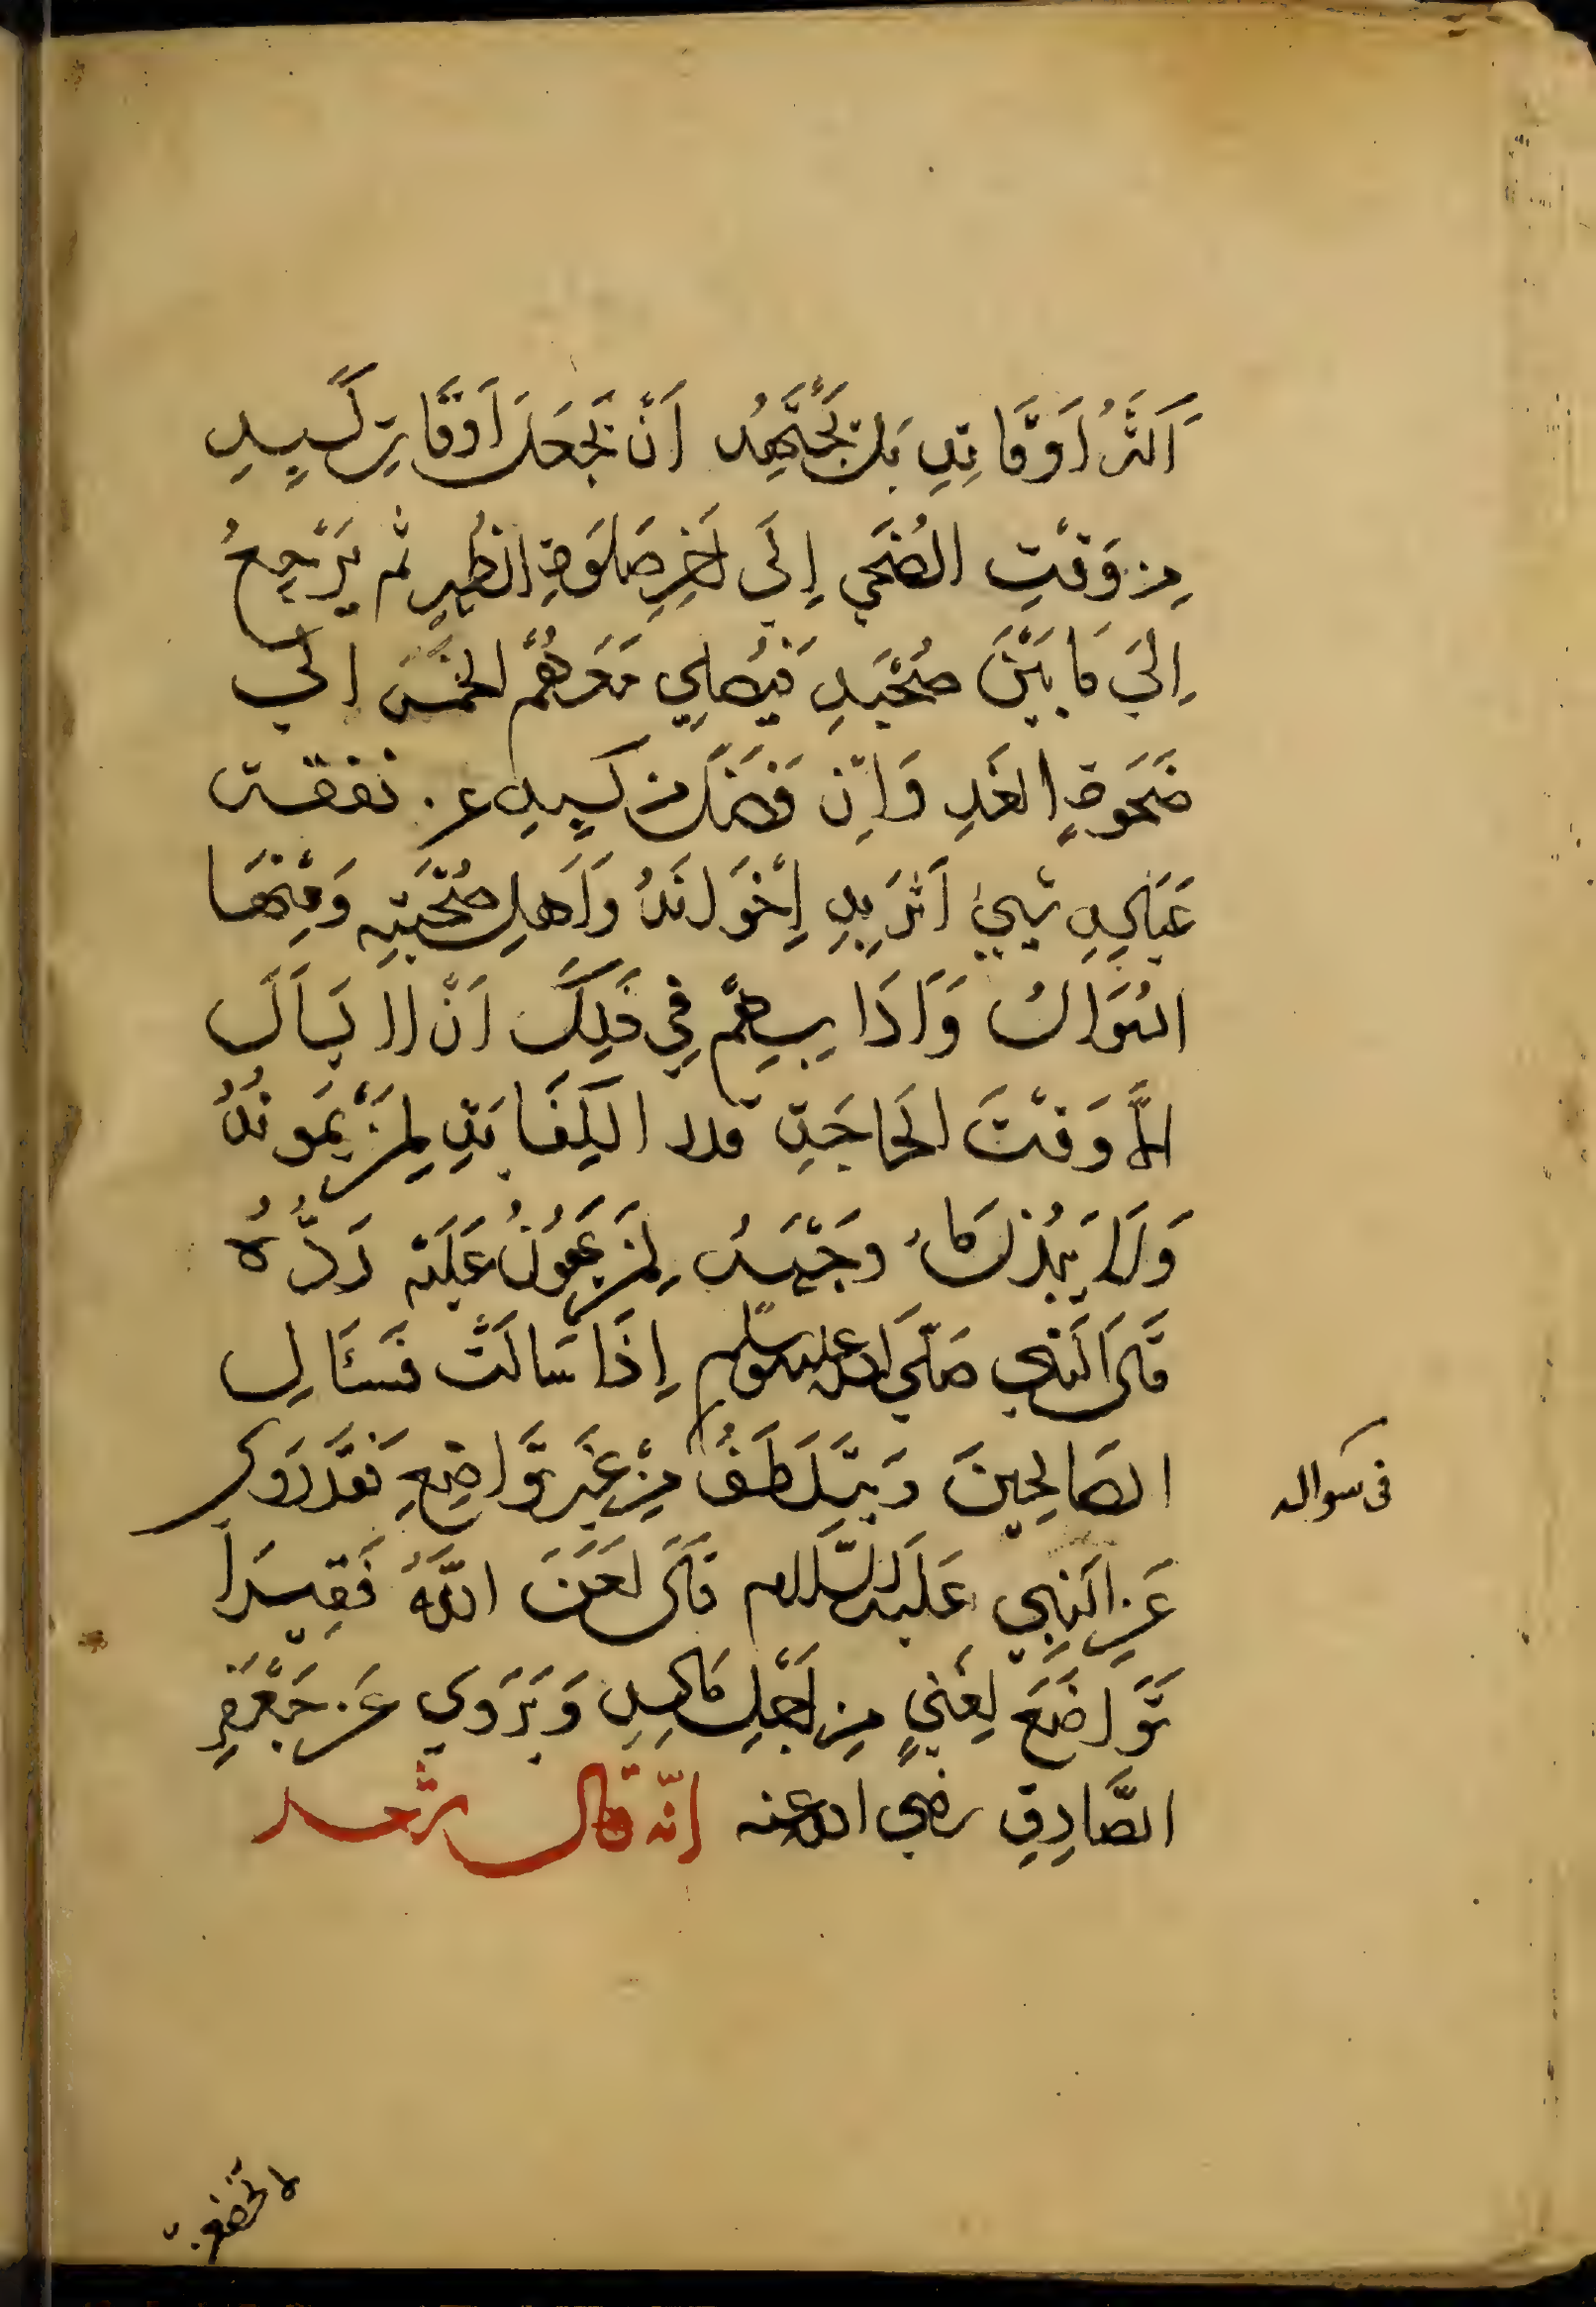 اَكْثَرُ اَوْقَاتِهِ بَلْ يَجْتَهِدُ اَنْ يَجْعَلَ اَوْقَاتِ كَسْبِهِ
مِن وَقْتِ الضُحَي إِلَي اَخِرِ صَلَوةِ الظُهرِ ثم يَرْجِعُ
إِلَيَ مَا بَيْنَ صُحْبَهِ فَيُصَلِي مَعَهُمْ الخَمْسَ الي
ضَحْوَةِ الغَدِ وَاِن فَضَلَ من كَسِبِهِ عن نفقت
عَيَالِهِ شَيئ اَثَرَ بِهِ إِخْوَانَهُ وَاَهلِ صُحْبَتِهِ وَمِنْهَا
السُوَالُ وَاَدَابِهِمْ فِي ذَلِكَ اَنْ لا يَسأَلَ
الَّا وَقتَ الحَاجَتِ قدر الكِفَايَتِ لِمَنْ يَمَونُهُ
وَلَا يَبْذلَ مَاءَ وجَهْهُ لِمَن يَهُونُ عَلَيْه رَدُّهُ
قَالَ النَبِي صَلَّي الله عليه وسلم إِذَا سَالَتْ فَسَئَالِ
الصَالِحِينَ وَيَتَلَطَفُ مِنْ غَيرِ تَوَاضِعِ فَقَدْ رَوَي
في سواله
عَنِ النَبِي عَلَيه السَّلَام قَالَ لَعَنَ اللَّهُ فَقِيرَا
تَوَاضَعَ لِغَنِيٍ مِن اَجْلِ مَالِهِ وَيَرَوي عَن جَعْفَرِ
الصَّادِقِ رضي الله عنه انّه قال